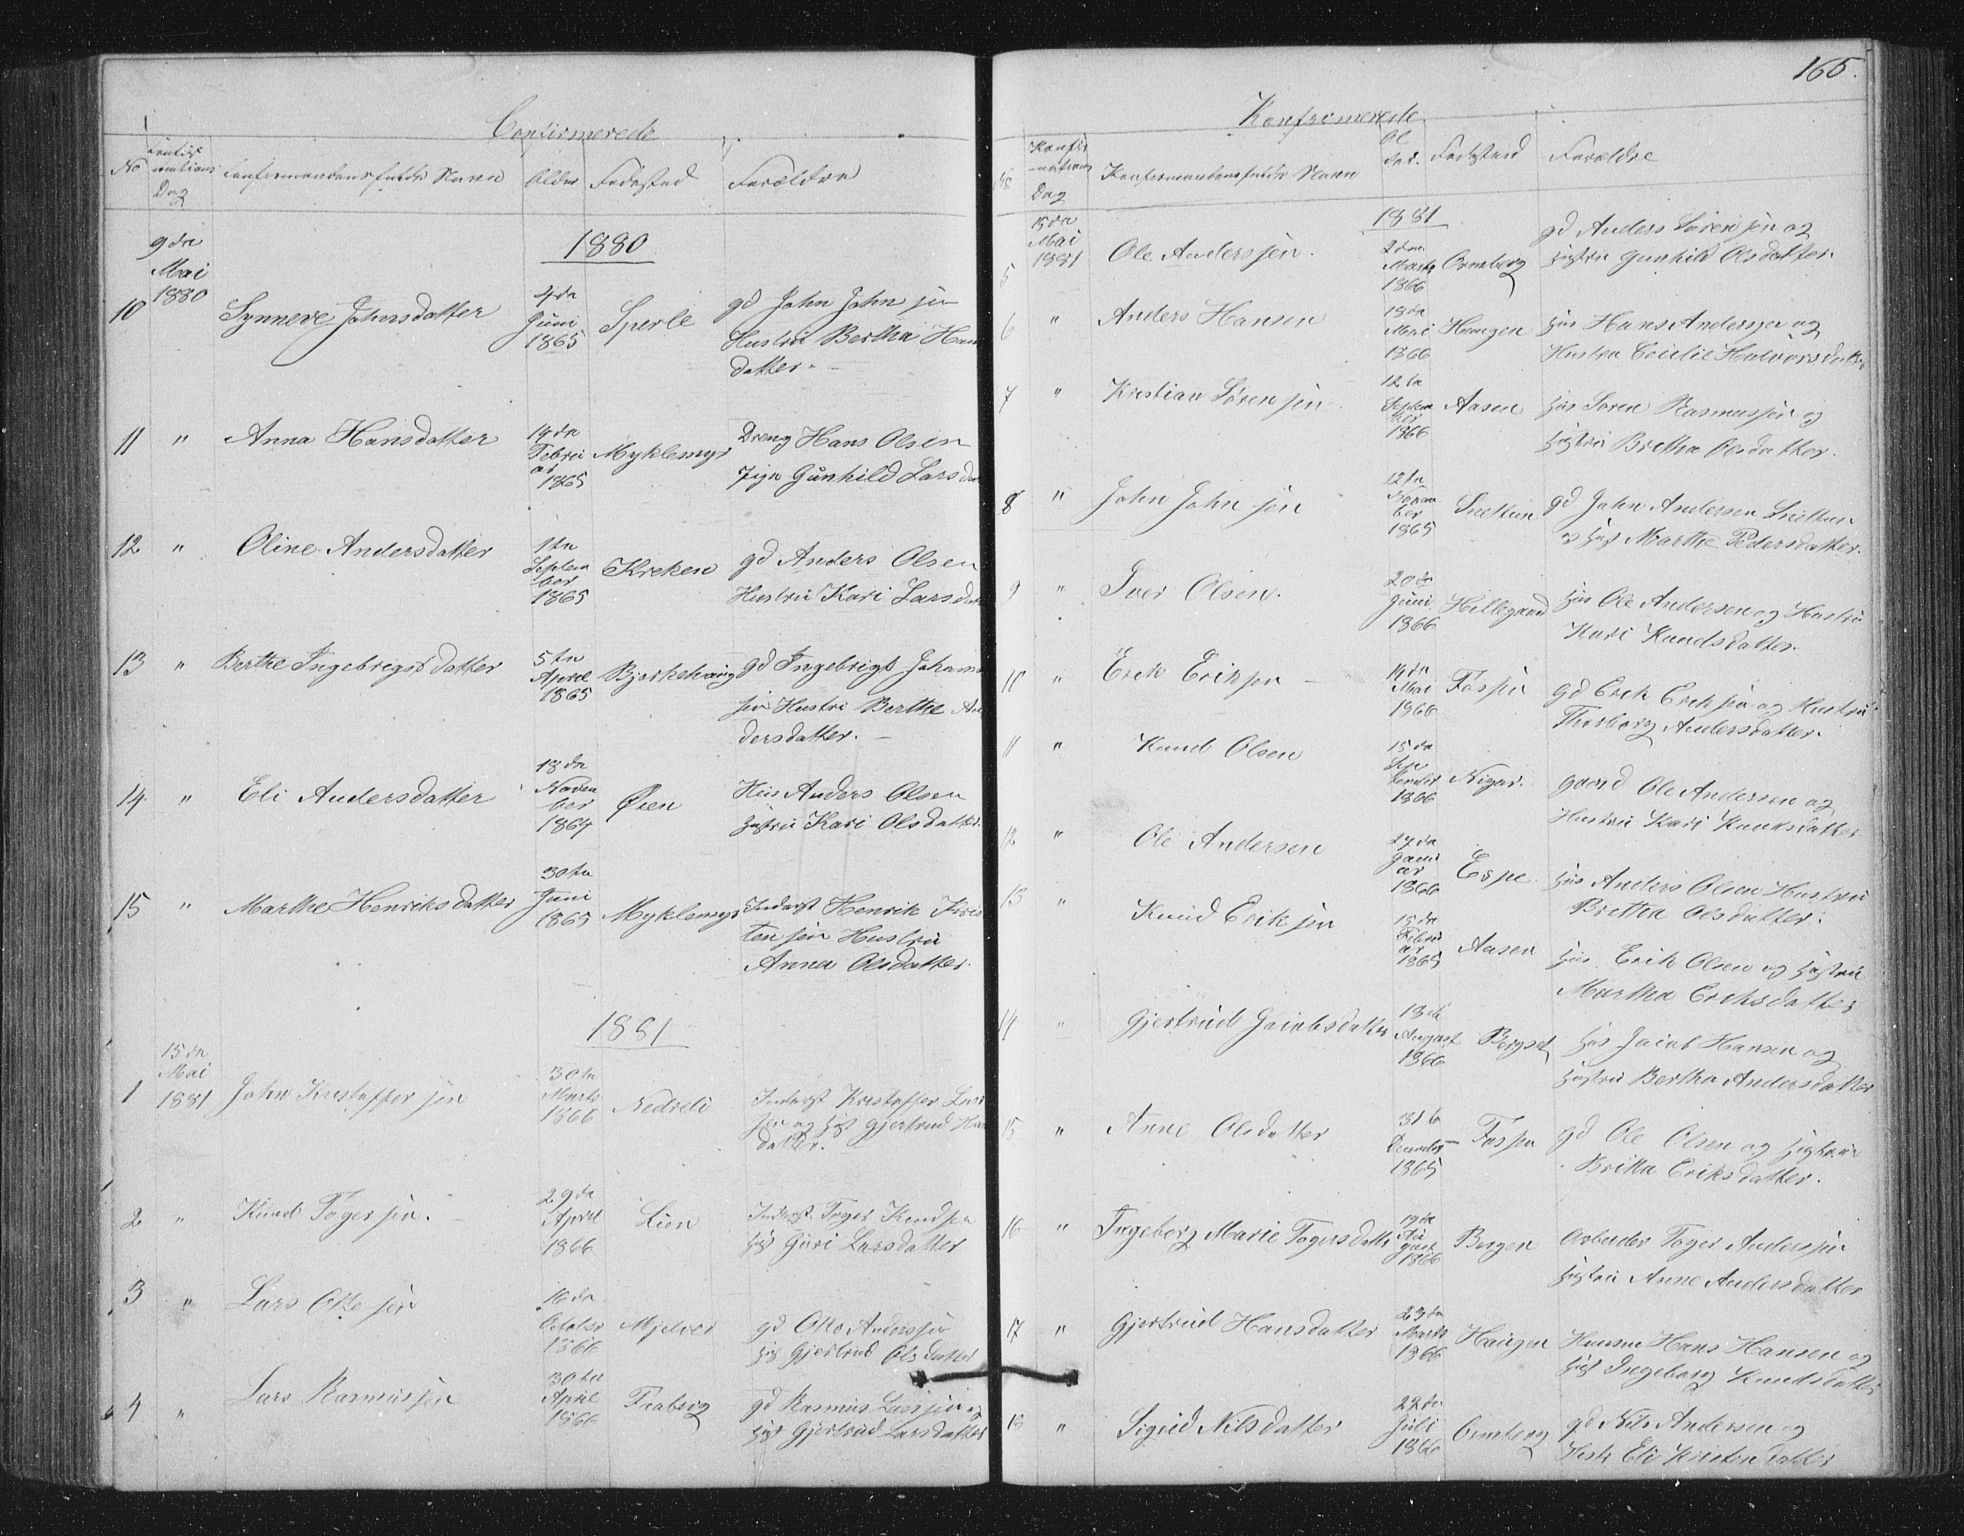 Confirmerede
No
Confir
mations
Dag
Confirmandens fulde Navn
Alder
Fødested
Forældre
1880
9de
Mai
1880
10 Synneve Johnsdatter 4de Juni 1865 Sperle gd John Johnsen
Hustru Bertha Hans
datter.
11 " Anna Hansdatter 14de Februar 1865 Myklemyr Dreng Hans Olsen
Pige Gunhild Larsdat
12 " Oline Andersdatter 1te September 1865 Kreken gd Anders Olsen
Hustru Kari Larsdat
13 " Berthe Ingebrigtsdatter 5te April 1865 Bjørkehaug gd Ingebrigt Johann
sen Hustru Berthe An
dersdatter.
14 " Eli Andersdatter 18de November 1864 Øien Huus Anders Olsen
Hustru Kari Olsdatter
15 " Marthe Henriksdatter 30te Juni 1865 Myklemyr Inderst Henrik Kris
tensen Hustru
Anna Olsdatter.
1881
15de
Mai
1881
1 John Kristoffersen 30te Marts 1866 Nedreli Inderst Kristoffer Lar
sen og Hust Gjertrud Hans
datter.
2 " Knud Togersen. 29de April 1866 Lien Inderst Toger Knudsen
Hust Guri Larsdatter
3 " Lars Ottesen 16de October 1866 Mjelver gd Otto Anderssen
Hust Gjertrud Olsdatter
4 " Lars Rasmussen 30te April 1866 Faaberg gd Rasmus Larssen og
Hust Gjertrud Larsdatter
165.
Konfirmerede
No
Konfir
mations
Dag
Konfirmandens fulde Navn
Al
der.
Fødested
Forældre
1881
15de
Mai
1881
5 Ole Anderssen. 2den Marts 1866 Ormberg gd Anders Sørensen og
Hustru Gunhild Olsdatter.
6 " Anders Hansen 18de Mai 1866 Haugen Hus Hans Andersen og
Hustru Cecilie Halvorsdatter
7 " Kristian Sørensen 12te September 1866 Aasen Hus Søren Rasmussen og
Hustru Bretha Olsdatter.
8 " John Johnsen 12te November 1865 Snettun gd John Andersen Snettun
og Hust Marthe Pedersdatter.
9 " Iver Olsen. 20de Juni 1866 Hillegaard Hus Ole Andersen og Hustru
Kari Knudsdatter.
10 " Erek Eriksen 14de Mai 1866 Fossen gd Erek Ereksen og Hustru
Thorborg Andersdatter.
11 " Knud Olsen 15de September 1866 Nigar. gaard Ole Andersen og
Hustru Kari Knudsdatter
12 " Ole Andersen 27de Januar 1866 Espe Hus Anders Olsen Hustru
Bretha Olsdatter.
13 " Knud Eriksen 15de Februar 1865 Aasen Hus Erik Olsen og Hustru
Martha Ereksdatter
14 " Gjertrud Jacobsdatter 18de August 1866 Bergset Hus Jacob Hansen og
Hustru Bertha Andersdatter
15 " Anne Olsdatter 31te December 1865 Fossen gd Ole Olsen og Hustru
Britha Eriksdatter.
16 " Ingeborg Marie Togersdatter 19de August 1866 Bergen Arbeider Toger Anderssen
Hustru Anne Andersdatter
17 " Gjertrud Hansdatter 23de Marts 1866 Haugen Huusm Hans Hansen og
Hust Ingeborg Knudsdatter
18 " Sigrid Nilsdatter 22de Juli 1866 Ormberg gd Nils Andersen og
Hust Eli Kristensdatter